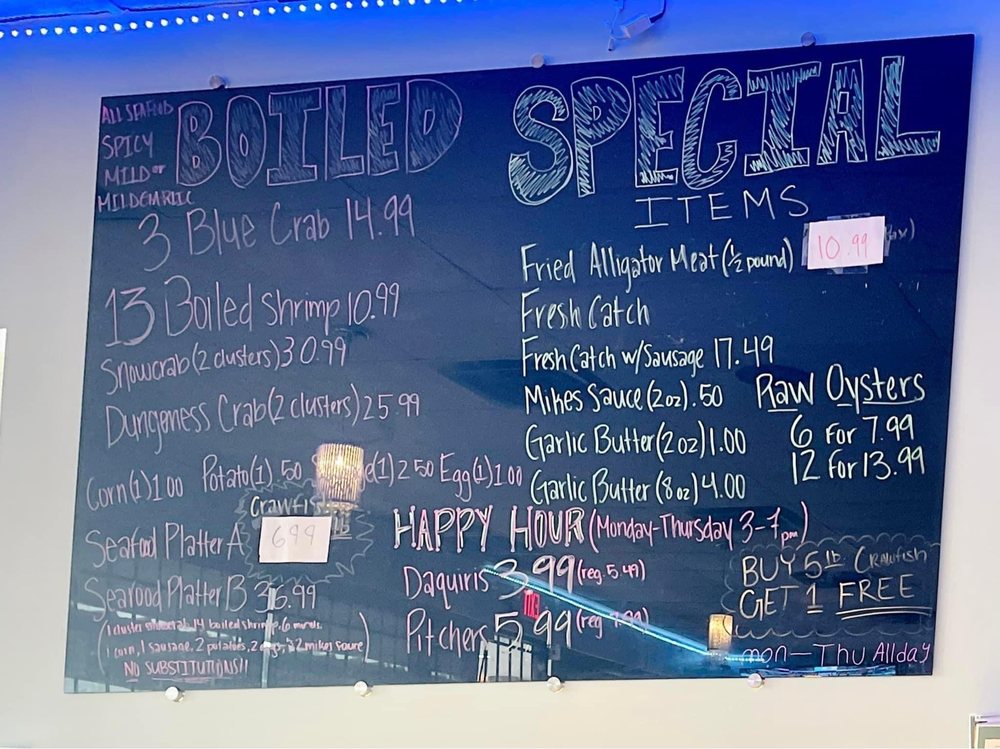 ALL SEAFOOD
SPICY
MILD or
BOILED
3 Blue Crab 14.99
13 Boiled shrimp 10.99
Snowcrab (2 clusters) 30.99
Dungeness Crab (2 clusters) 25.99
Corn (1) 1.00 Potato (1) .50 (1) 2.50 Egg (1) 1.00
Crawfish
6.99
Seafood Platter A
Seafood Platter B 36.99
(1 cluster snowcrab, 14 boiled shrimp, 6 mussels,
1 corn, 1 sausage, 2 potatoes, 2 eggs, 2 mikes sauce)
NO SUBSTITUTIONS!!
SPECIAL
ITEMS
Fried Alligator Meat (1/2 pound) 10.99
Fresh Catch
Fresh Catch w/Sausage 17.49
Mikes Sauce (2oz) .50
Garlic Butter (2oz) 1.00
Garlic Butter (8oz) 4.00
Raw Oysters
6 For 7.99
12 For 13.99
HAPPY HOUR (Monday-Thursday 3-7pm)
Daquiris 3.99 (reg. 5.49)
Pitchers 5.99 (reg
BUY 5 lb. Crawfish
GET 1 FREE
mon-Thu All day